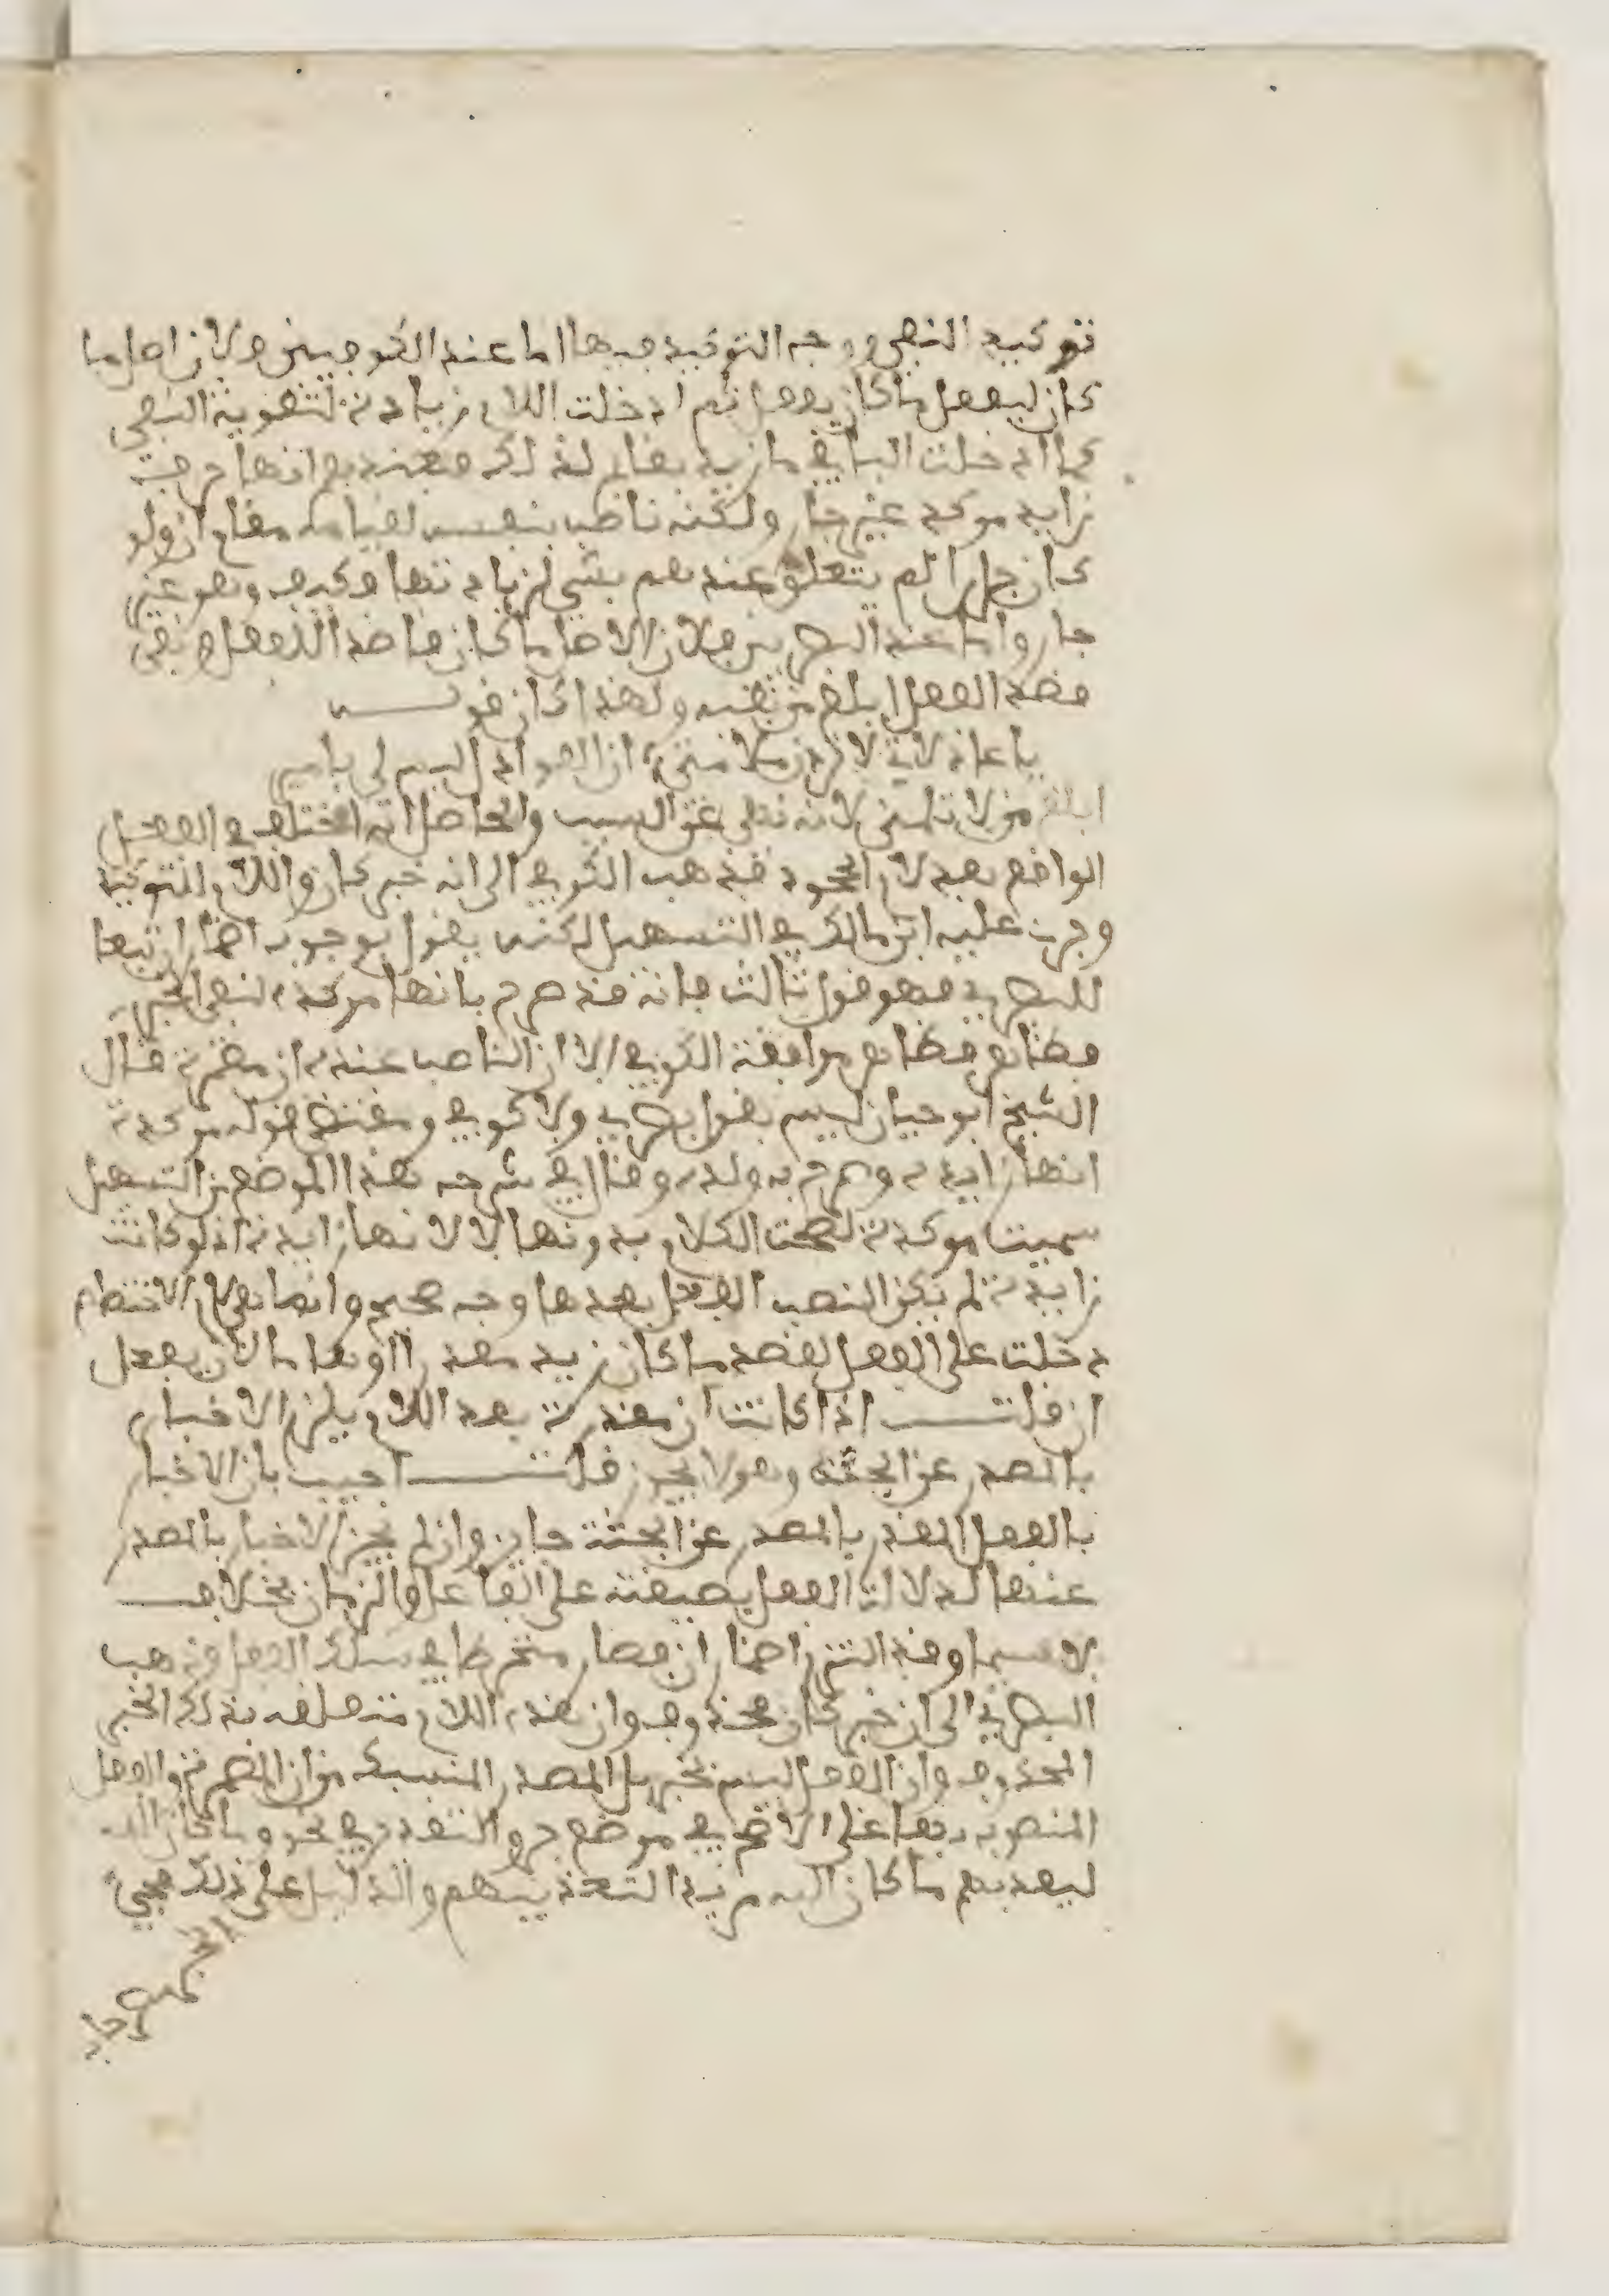 توكيد النفي ووجه التوكيد فيها اما عند الكوفيين فلان اصل ما
كان ليفعل ما كان يفعل ثم ادخلت اللام زيادة لتقوية النفي
كما ادخلت البا في ما زيد بقايم لذلك فعندهم انها حرف
زايد موكد غير جار ولكنه ناصب بنفسه لقيامه مقام ان ولو
كان جارا لم يتعلق عندهم بشي لزيادتها فكيف وهو غير
جار واما عند البصريين فلان الاصل ما كان قاصدا للفعل ونفي
قصد الفعل ابلغ من نفيه ولهذا كان قولــه
يا عاذلاتي لا تردن ملامتي ان العواذل ليس لي بامير
ابلغ من لا تلمنني لانه نهي عن السبب والحاصل انه اختلف في الفعل
الواقع بعد لام الجحود فذهب الكوفي الى انه خبر كان واللام للتوكيد
وجرى عليه ابن مالك في التسهيل لكنه يقول بوجوب اضمار ان تبعا
للبصري فهو قول ثالث فانه قد صرح بانها موكدة لنفي الخبر
فظاهر موافقة الكوفي الا ان الناصب عنده ان مضمرة قال
الشيخ ابو حيان ليس بقول بصري ولا كوفي ومقتضى قوله موكدة
انها زايدة وصرح به ولده وقال في شرحه لهذا الموضع من التسهيل
سميت موكدة لصحة الكلام بدونها لا لانها زايدة اذ لو كانت
زايدة لم يكن لنصب الفعل بعدها وجه صحيح وانما هي لام الاختصاص
دخلت على الفعل لقصد ما كان زيد مقدرا او هاما لان يفعل
ان قلتــ اذا كانت ان مقدرة بعد اللام يلزم الاخبار
بالمصدر عن الجثة وهو لا يجوز قلتــ اجيب بان الاخبار
بالفعل المقدر بالمصدر عن الجثة جايز وان لم يجز الاخبار بالمصدر
عنها لدلالة الفعل بصيغته على الفاعل والزمان بخلافــه
لا سيما وقد التزم اضمار ان فصار منخرطا في سلك الفعل وذهب
البصري الى ان خبر كان محذوف وان هذه اللام متعلقة بذلك الخبر
المحذوف وان الفعل ليس بخبر بل المصدر المنسبك من ان المضمرة والفعل
المنصوب بها على الاصح في موضع جر والتقدير في نحو وما كان الله
ليعذبهم ما كان الله مريدا لتعذيبهم والدليل على ذلك مجيء